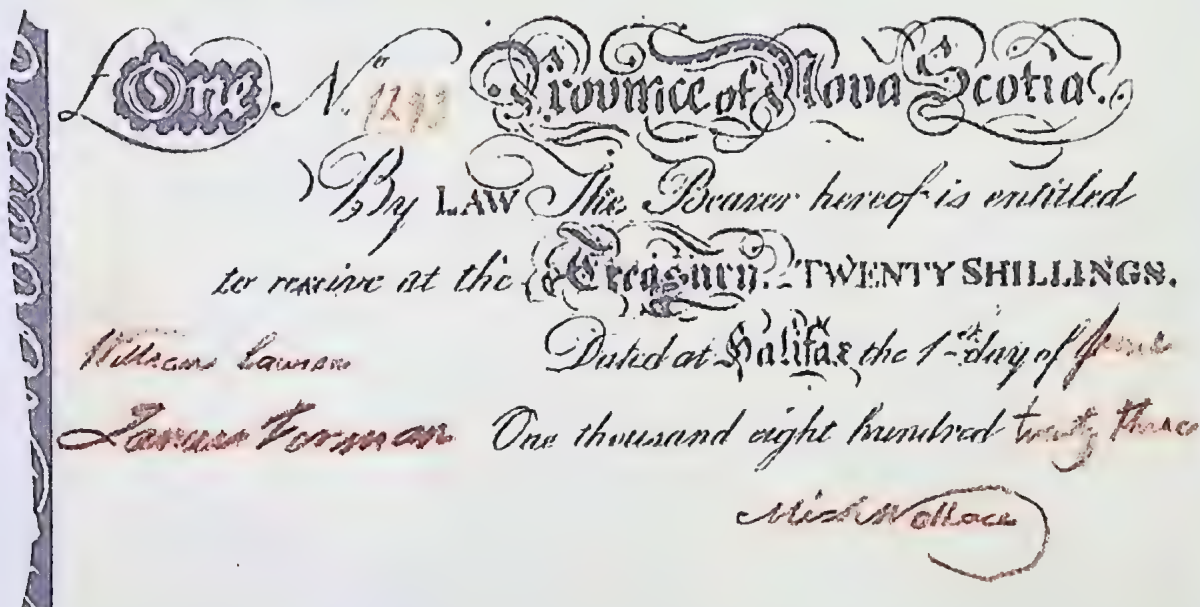 £One No. 1293 Province of Nova Scotia.
By LAW The Bearer hereof is entitled
to receive at the Treasury. TWENTY SHILLINGS.
William Lawson Dated at Halifax the 1st day of June
James Forman One thousand eight hundred twenty three
Mich Wallace